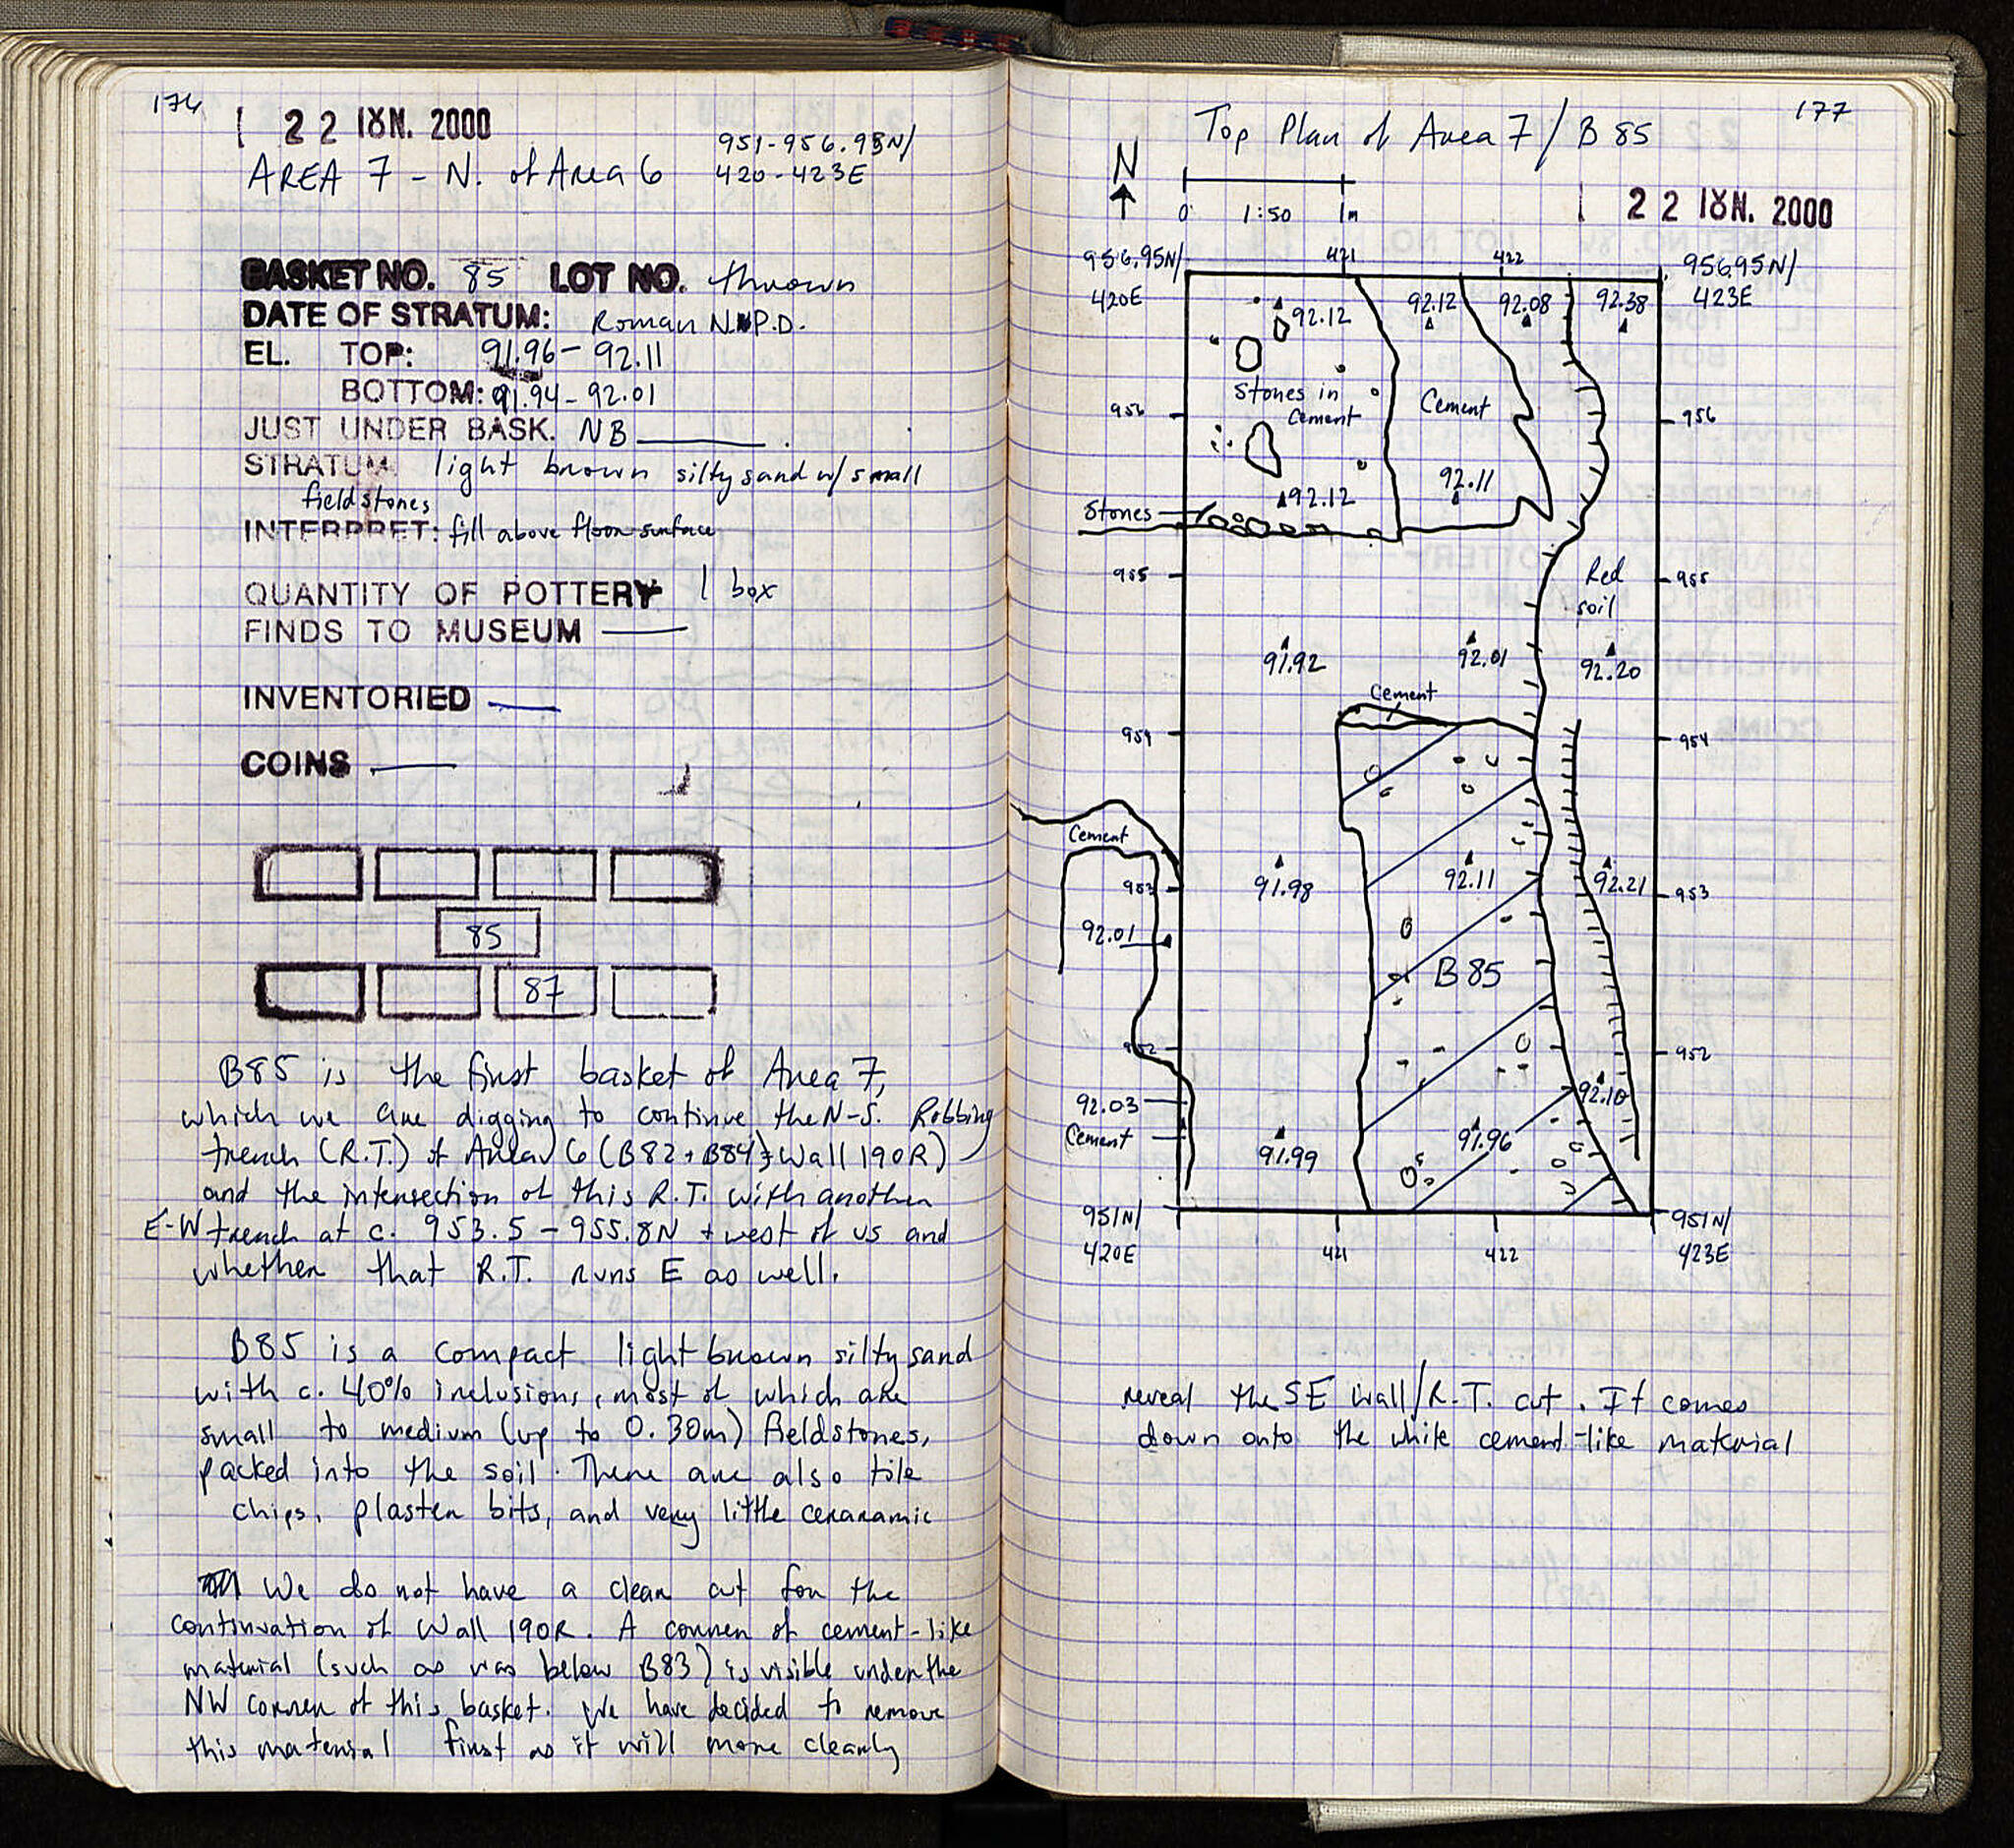 176
22 ΙΟΥΝ. 2000
AREA 7 - N. of Area 6
951-956.95N/
420-423E
BASKET NO. 85 LOT NO. thrown
DATE OF STRATUM: Roman N.P.D.
EL. TOP: 91.96 - 92.11
BOTTOM: 91.94 - 92.01
JUST UNDER BASK. NB
STRATUM: light brown silty sand w/ small
fieldstones
INTERPRET: fill above floor surface
QUANTITY OF POTTERY 1 box
FINDS TO MUSEUM —
INVENTORIED —
COINS —
85
87
B85 is the first basket of Area 7,
which we are digging to continue the N-S. Robbing
trench (R.T.) of Area 6 (B82 + B84 + Wall 190R)
and the intersection of this R.T. with another
E-W trench at c. 953.5 - 955.8N + west of us and
whether that R.T. runs E as well.
B85 is a compact light brown silty sand
with c. 40% inclusions, most of which are
small to medium (up to 0.30m) fieldstones,
packed into the soil. There are also tile
chips, plaster bits, and very little ceraramic
We do not have a clean cut for the
continuation of Wall 190R. A corner of cement-like
material (such as was below B83) is visible under the
NW corner of this basket. We have decided to remove
this material first as it will more cleanly
177
Top Plan of Area 7 / B85
N
0 1:50 1m
22 ΙΟΥΝ. 2000
956.95N/
420E
421
422
956.95N/
423E
92.12
92.12
92.08
92.38
Stones in
Cement
Cement
956
956
92.12
92.11
Stones
955
Red
soil
955
91.92
92.01
92.20
Cement
954
954
Cement
953
91.98
92.11
92.21
953
92.01
B85
952
952
92.03
Cement
92.10
91.99
91.96
951N/
420E
421
422
951N/
423E
reveal the SE wall/R.T. cut. It comes
down onto the white cement-like material